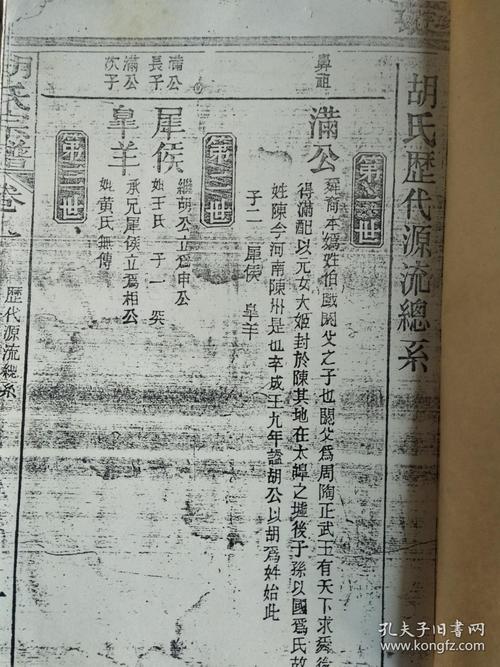 胡氏歷代源流總系
第一世
鼻祖
滿公
舜裔本媯姓伯戲閼父之子也閼父為周陶正武王有天下求舜後
得滿配以元女大姬封於陳其地在太皡之墟後子孫以國為氏故
姓陳今河南陳州是也卒成王九年謚胡公以胡為姓始此
子二 犀侯 皐羊
第二世
滿公
長子
犀侯
繼胡公立為申公
姓王氏 子一 突
滿公
次子
皐羊
承兄犀侯立為相公
姓黃氏無傳
第三世
胡氏宗譜
卷
歷代源流總系
孔夫子旧书网
www.kongfz.com